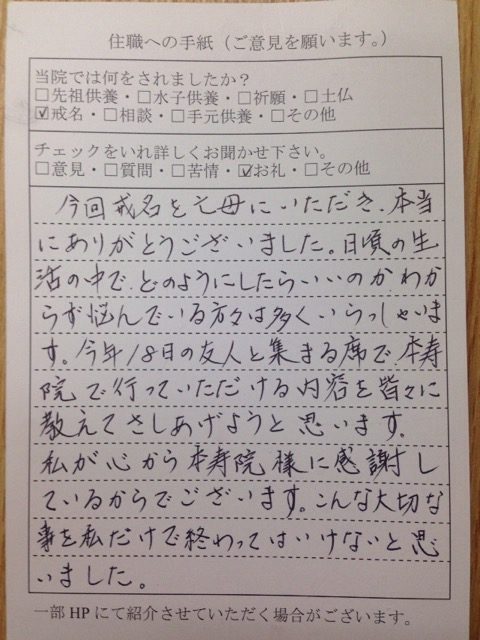 住職への手紙（ご意見を願います。）
当院では何をされましたか？
□先祖供養・□水子供養・□祈願・□土仏
☑戒名・□相談・□手元供養・□その他
チェックをいれ詳しくお聞かせ下さい。
□意見・□質問・□苦情・☑お礼・□その他
今回戒名を亡母にいただき、本当
にありがとうございました。日頃の生
活の中で、どのようにしたらいいのかわか
らず悩んでいる方々は多くいらっしゃいま
す。今年18日の友人と集まる席で本寿
院で行っていただける内容を皆々に
教えてさしあげようと思います。
私が心から本寿院様に感謝し
ているからでございます。こんな大切な
事を私だけで終わってはいけないと思
いました。
一部HPにて紹介させていただく場合がございます。